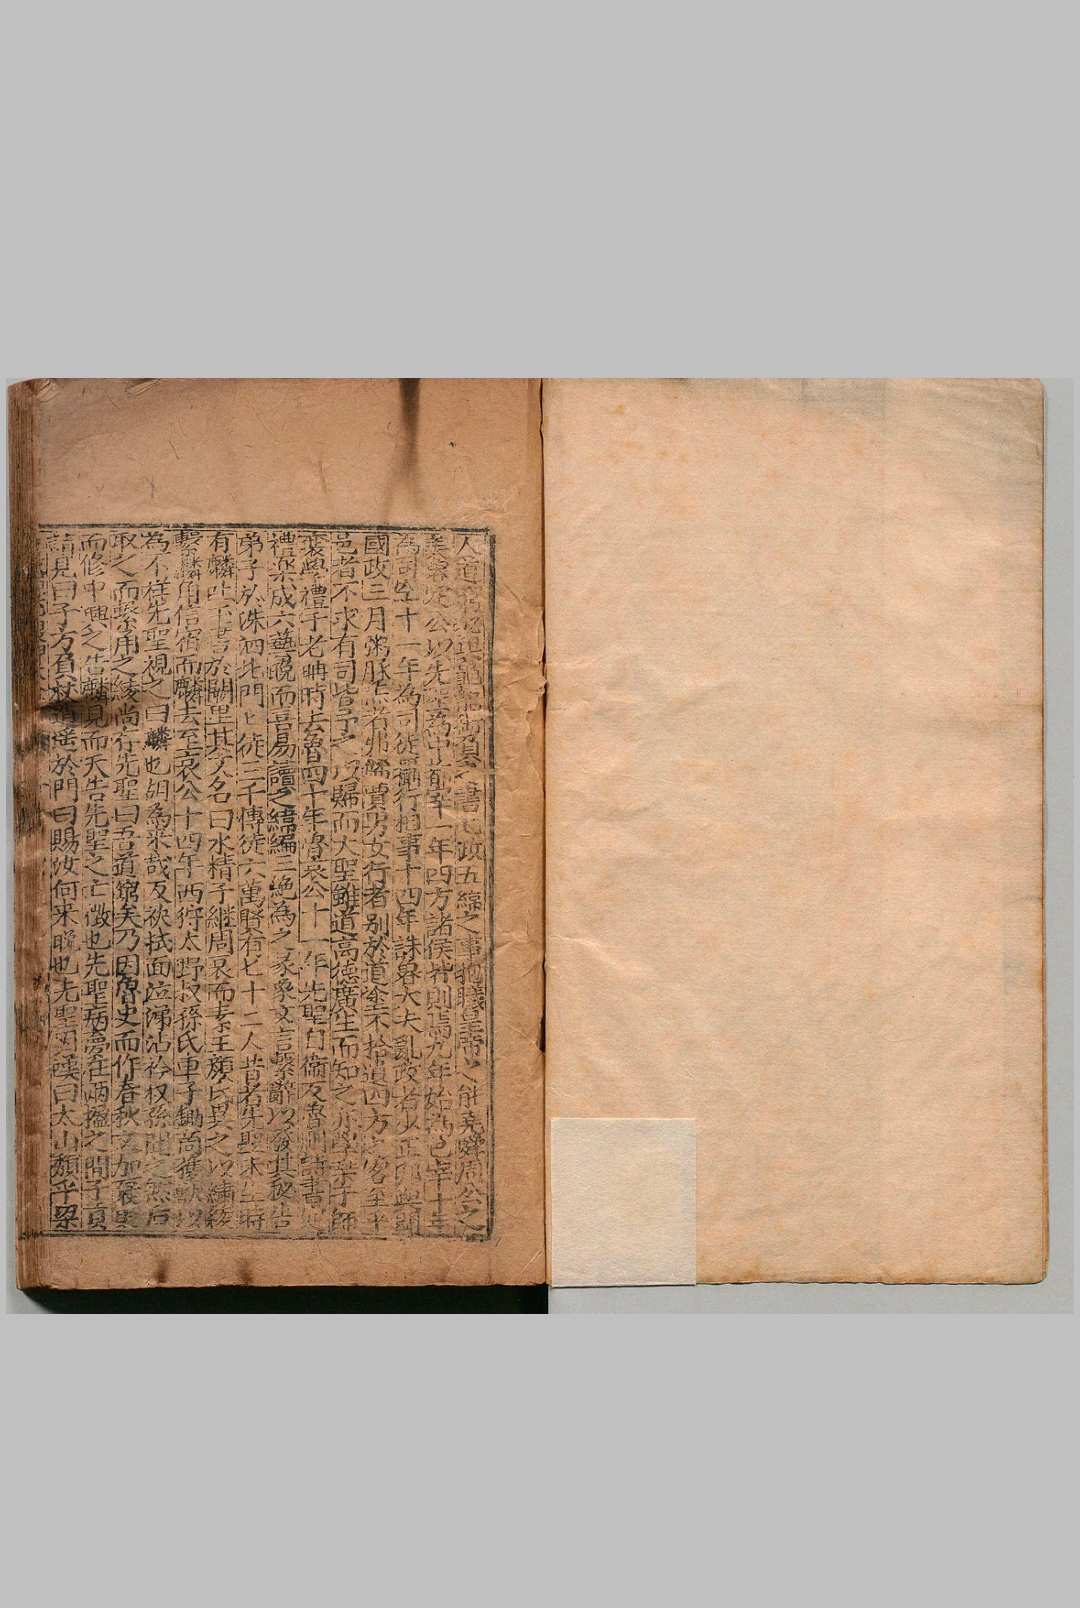 人道 書七政五緯之事 堯舜周公之
定公以先聖為中都宰一年四方諸侯皆則焉九年始為邑宰十年
為司空十一年為司徒攝行相事十四年誅魯大夫亂政者少正卯與聞
國政三月粥羔豚者弗飾賈男女行者別於道塗不拾遺四方之客至乎
邑者不求有司皆予之以歸而大聖雖道高德廣生而知之亦學琴于師
襄學禮于老聃時去魯四十年魯哀公十一年先聖自衛反魯刪詩書定
禮樂成六藝晚而喜易讀之韋編三絕為之彖象文言繫辭以發其秘告
弟子於洙泗北門之徒三千傳徒六萬賢者七十二人昔者先聖未生時
有麟吐玉書於闕里其文名曰水精子繼周衰而素王顏氏異之以繡紱
繫麟角信宿而麟去至哀公十四年西狩大野叔孫氏車子鋤商獲獸以
為不祥先聖視之曰麟也胡為来哉反袂拭面泣涕沾衿叔孫聞之然后
取之而繫角之綾尚存先聖曰吾道窮矣乃因魯史而作春秋文加褒貶
而修中興之告麟見而天告先聖之亡徵也先聖病夢在兩楹之間子貢
請見曰子方負杖逍遙於門曰賜汝何来晚也先聖因嘆曰太山頹乎梁